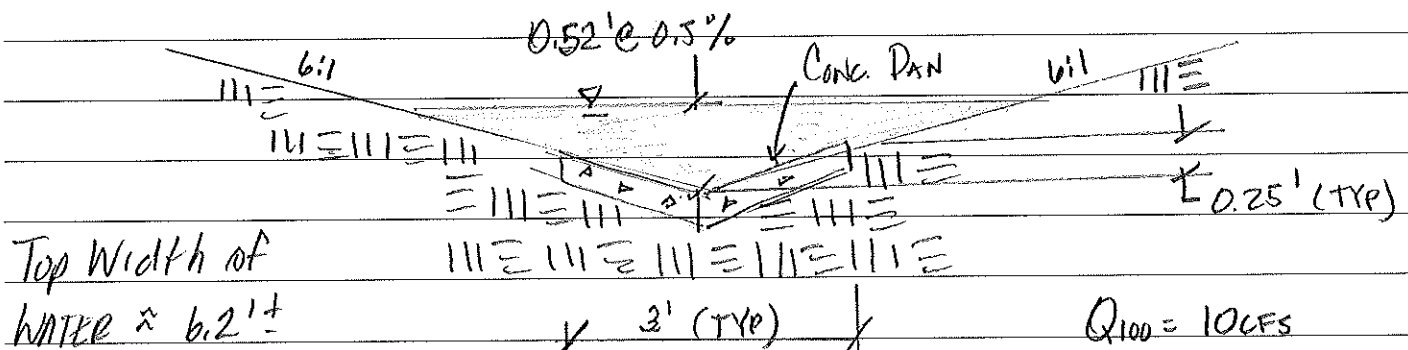 0.52' @ 0.5%
6:1
CONC. PAN
6:1
0.25' (TYP)
Top Width of
WATER ≈ 6.2'±
3' (TYP)
Q100 = 10CFS